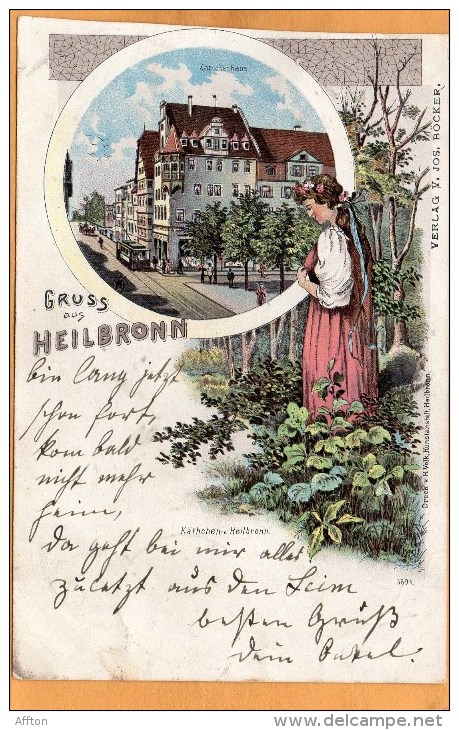 Käthchenhaus
VERLAG V. JOS. BÖCKER.
GRUSS
aus
HEILBRONN
bin lang jetzt
schon fort,
kom bald
nicht mehr
heim,
da geht bei mir alles
zuletzt aus den Leim
besten Gruß
dein Onkel.
Käthchen v. Heilbronn.
Druck v. H. Volk, Kunstanstalt, Heilbronn.
3694.
Affton
www.delcampe.net